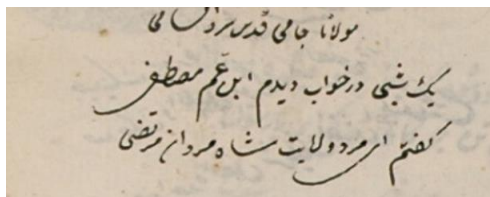 مولانا جامی قدس سره السامی
یک شبی در خواب دیدم ابن عم مصطفی
گفتم ای مرد ولایت شاه مردان مرتضی